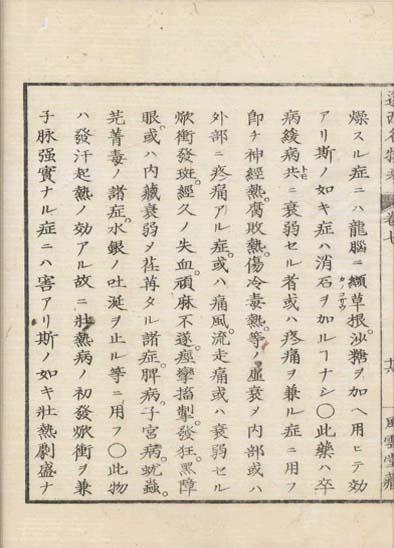 遠西名物考 卷七 十八 風雲堂藏
燥スル症ニハ龍腦ニ纈草根。沙糖ヲ加ヘ用ヒテ効
アリ斯ノ如キ症ハ消石ヲ加ルヿナシ〇此藥ハ卒
病緩病共ニ衰弱セル者或ハ疼痛ヲ兼ル症ニ用フ
卽チ神經熱。腐敗熱。傷冷毒熱。等ノ虛衰〆内部或ハ
外部ニ疼痛アル症。或ハ痛風。流走痛或ハ衰弱セル
焮衝發斑。經久ノ失血。頑麻不遂。痙攣搐掣。發狂。黑障
眼。或ハ内藏衰弱〆荏苒タル諸症。脾病。子宮病。蚘蟲。
芫菁毒ノ諸症。水銀ノ吐涎ヲ止ル等ニ用フ〇此物
ハ發汗起熱ノ効アル故ニ壯熱病ノ初發焮衝ヲ兼
子脉强實ナル症ニハ害アリ斯ノ如キ壯熱劇盛ナ